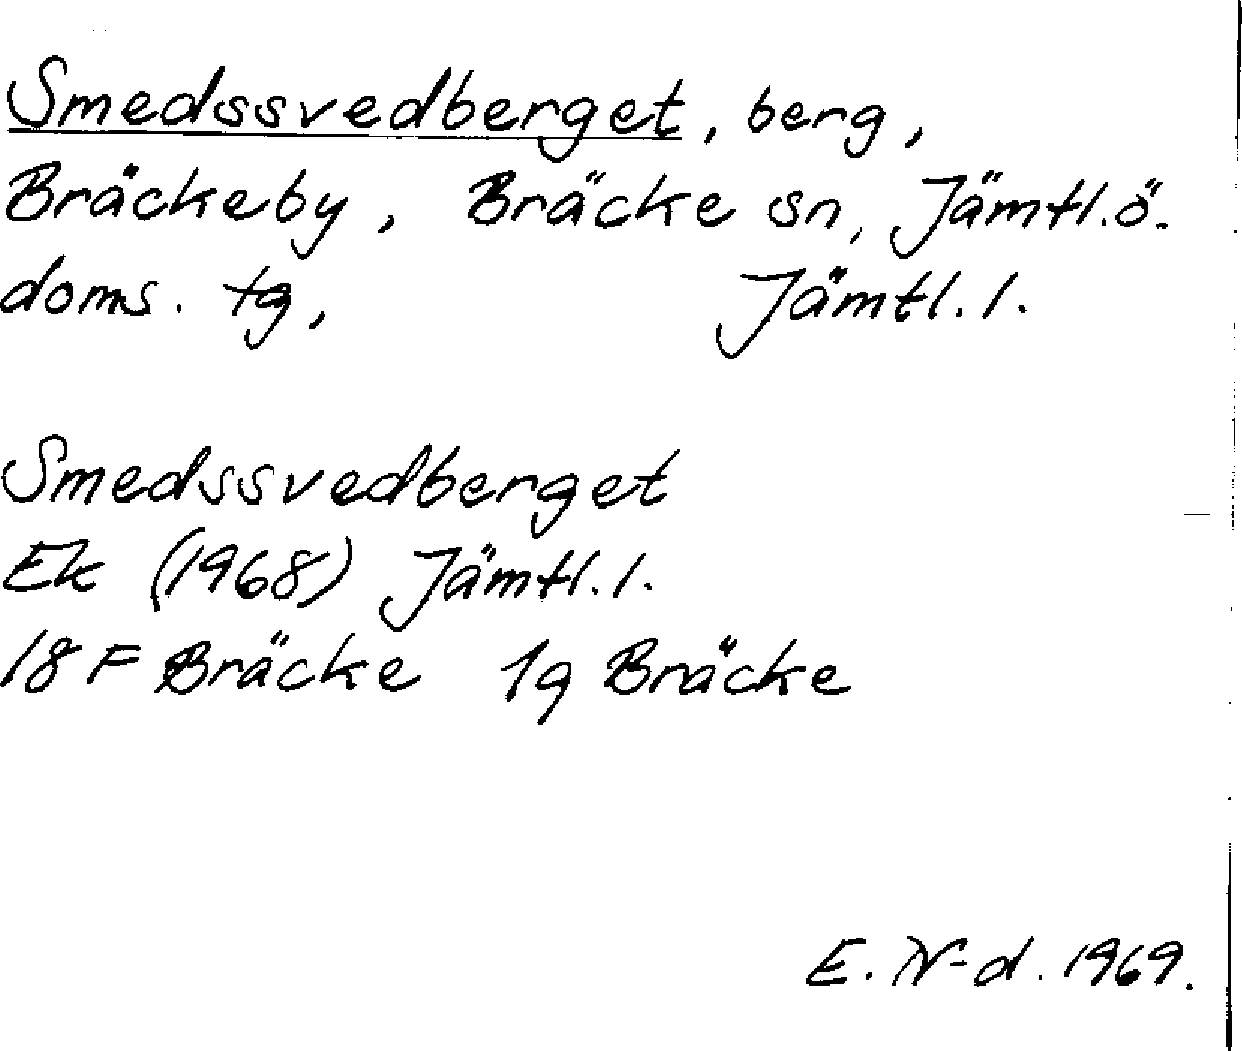 Smedssvedberget, berg,
Bräckeby, Bräcke sn, Jämtl.ö.
doms. tg, Jämtl. l.
Smedssvedberget
Ek (1968) Jämtl. l.
18 F Bräcke 1g Bräcke
E. N-d. 1969.